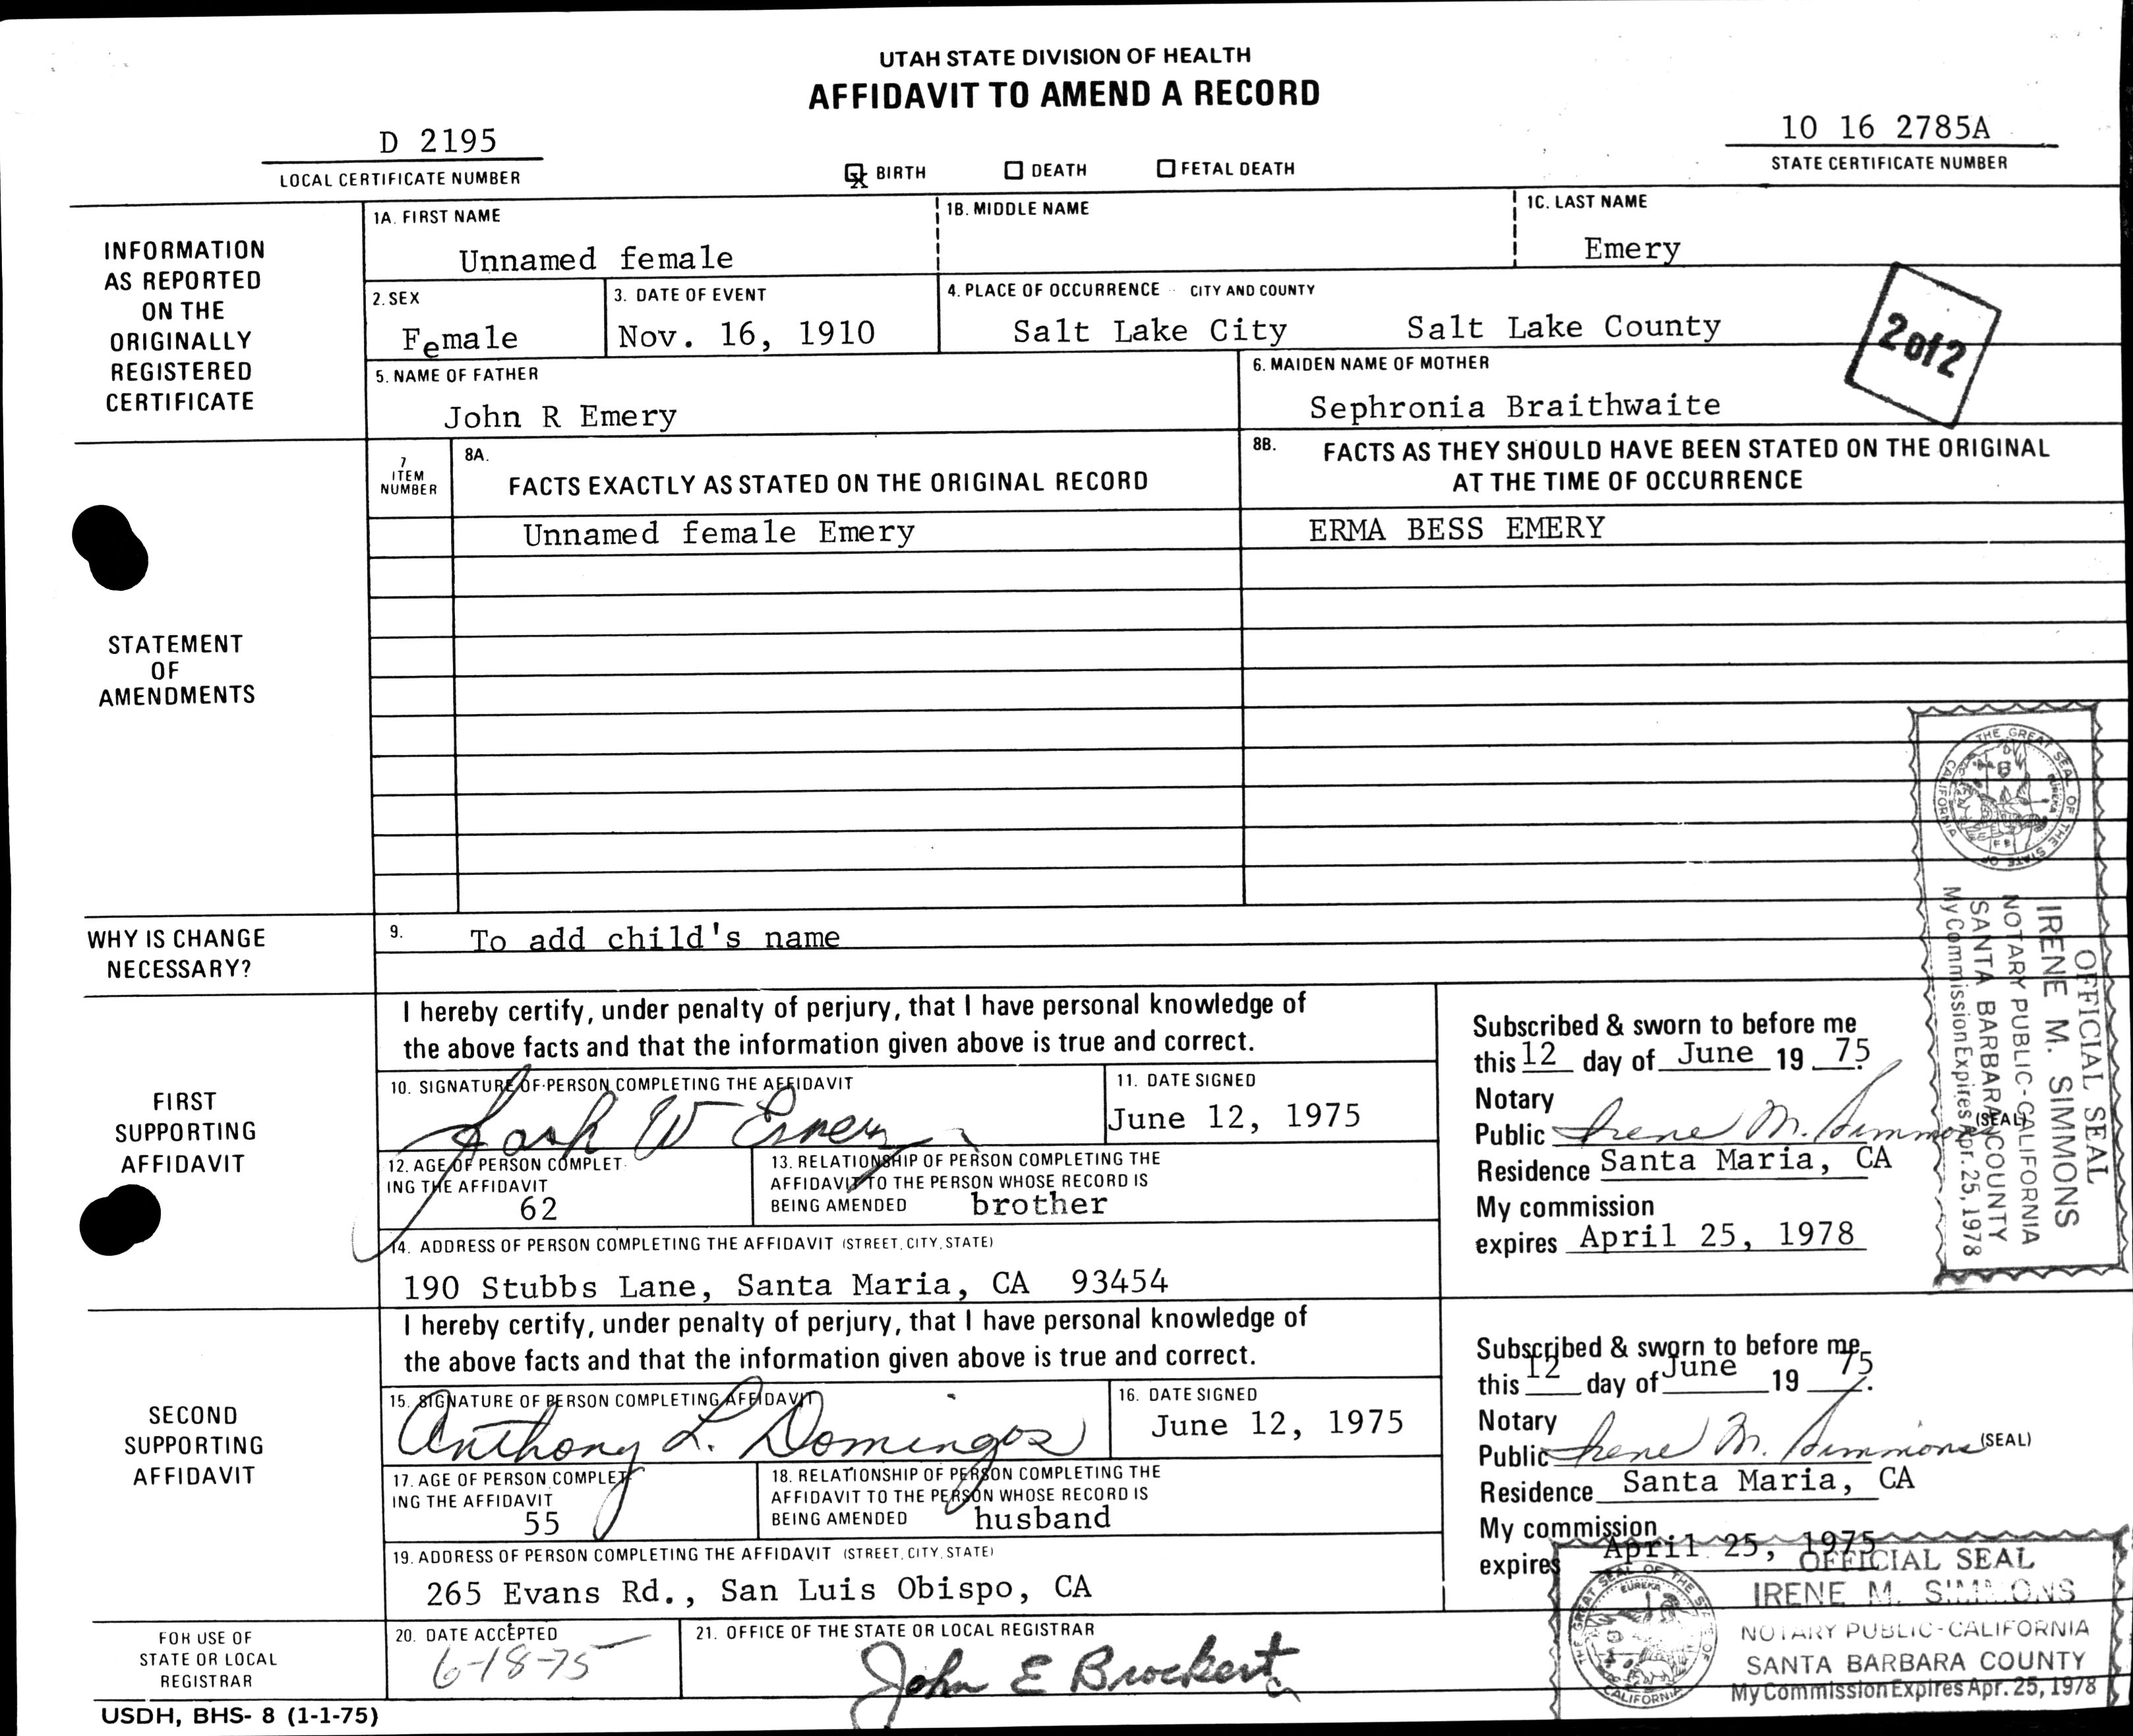 UTAH STATE DIVISION OF HEALTH
AFFIDAVIT TO AMEND A RECORD
D 2195
LOCAL CERTIFICATE NUMBER
X BIRTH
DEATH
FETAL DEATH
10 16 2785A
STATE CERTIFICATE NUMBER
INFORMATION
AS REPORTED
ON THE
ORIGINALLY
REGISTERED
CERTIFICATE
1A. FIRST NAME
Unnamed female
1B. MIDDLE NAME
1C. LAST NAME
Emery
2. SEX
Female
3. DATE OF EVENT
Nov. 16, 1910
4. PLACE OF OCCURRENCE - CITY AND COUNTY
Salt Lake City Salt Lake County
2 of 2
5. NAME OF FATHER
John R Emery
6. MAIDEN NAME OF MOTHER
Sephronia Braithwaite
STATEMENT
OF
AMENDMENTS
7
ITEM
NUMBER
8A.
FACTS EXACTLY AS STATED ON THE ORIGINAL RECORD
8B. FACTS AS THEY SHOULD HAVE BEEN STATED ON THE ORIGINAL
AT THE TIME OF OCCURRENCE
Unnamed female Emery
ERMA BESS EMERY
WHY IS CHANGE
NECESSARY?
9. To add child's name
FIRST
SUPPORTING
AFFIDAVIT
I hereby certify, under penalty of perjury, that I have personal knowledge of
the above facts and that the information given above is true and correct.
10. SIGNATURE OF PERSON COMPLETING THE AFFIDAVIT
W Emery
11. DATE SIGNED
June 12, 1975
12. AGE OF PERSON COMPLET-
ING THE AFFIDAVIT
62
13. RELATIONSHIP OF PERSON COMPLETING THE
AFFIDAVIT TO THE PERSON WHOSE RECORD IS
BEING AMENDED brother
14. ADDRESS OF PERSON COMPLETING THE AFFIDAVIT (STREET, CITY, STATE)
190 Stubbs Lane, Santa Maria, CA 93454
Subscribed & sworn to before me
this 12 day of June 19 75.
Notary
Public Irene M. Simmons (SEAL)
Residence Santa Maria, CA
My commission
expires April 25, 1978
THE GREAT SEAL OF THE STATE OF CALIFORNIA
EUREKA
OFFICIAL SEAL
IRENE M. SIMMONS
NOTARY PUBLIC-CALIFORNIA
SANTA BARBARA COUNTY
My Commission Expires Apr. 25, 1978
SECOND
SUPPORTING
AFFIDAVIT
I hereby certify, under penalty of perjury, that I have personal knowledge of
the above facts and that the information given above is true and correct.
15. SIGNATURE OF PERSON COMPLETING AFFIDAVIT
Anthony L. Domingos
16. DATE SIGNED
June 12, 1975
17. AGE OF PERSON COMPLET
ING THE AFFIDAVIT
55
18. RELATIONSHIP OF PERSON COMPLETING THE
AFFIDAVIT TO THE PERSON WHOSE RECORD IS
BEING AMENDED husband
19. ADDRESS OF PERSON COMPLETING THE AFFIDAVIT (STREET, CITY, STATE)
265 Evans Rd., San Luis Obispo, CA
Subscribed & sworn to before me
this 12 day of June 19 75.
Notary
Public Irene M. Simmons (SEAL)
Residence Santa Maria, CA
My commission
expires April 25, 1975
THE GREAT SEAL OF THE STATE OF CALIFORNIA
EUREKA
OFFICIAL SEAL
IRENE M. SIMMONS
NOTARY PUBLIC-CALIFORNIA
SANTA BARBARA COUNTY
My Commission Expires Apr. 25, 1978
FOR USE OF
STATE OR LOCAL
REGISTRAR
20. DATE ACCEPTED
6-18-75
21. OFFICE OF THE STATE OR LOCAL REGISTRAR
John E Brockert
USDH, BHS- 8 (1-1-75)